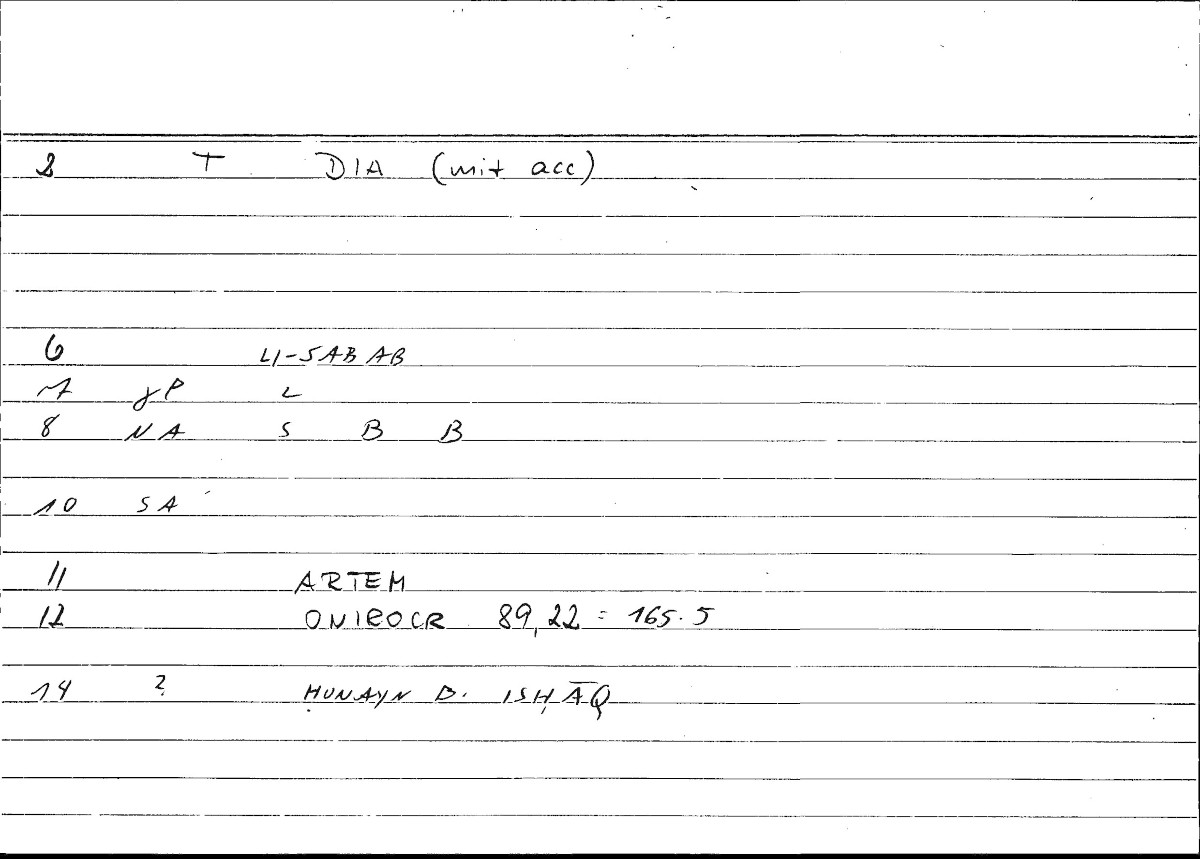 2 T DIA (mit acc)
6 LI-SABAB
7 γP L
8 NA S B B
10 SA
11 ARTEM
12 ONIROCR 89,22 = 165.5
14 ? ḤUNAYN B. ISḤĀQ